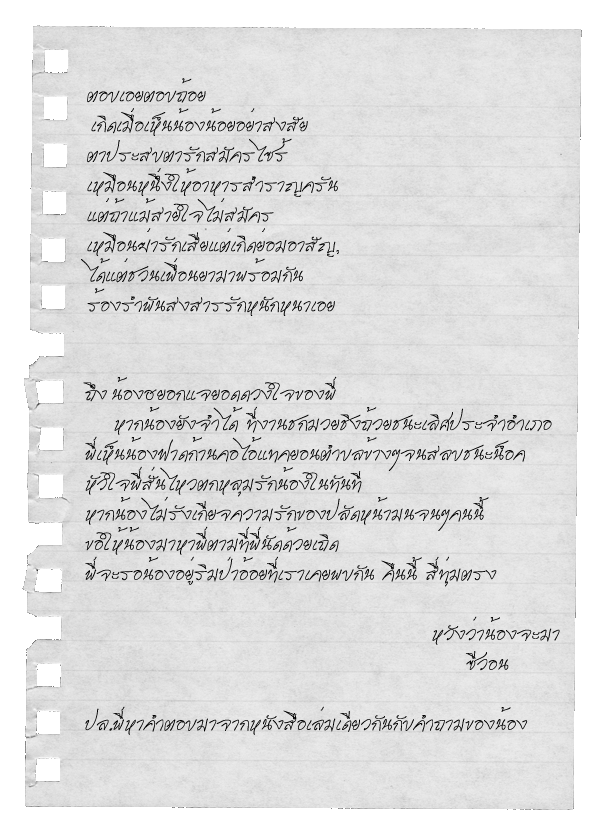 ตอบเอยตอบถ้อย
เกิดเมื่อเห็นน้องน้อยอย่าสงสัย
ตาประสบตารักสมัครไซร้
เหมือนหนึ่งให้อาหารสำราญครัน
แต่ถ้าแม้สายใจไม่สมัคร
เหมือนฆ่ารักเสียแต่เกิดย่อมอาสัญ,
ได้แต่ชวนเพื่อนยามาพร้อมกัน
ร้องรำพันสงสารรักหนักหนาเอย
ถึง น้องฮยอกแจยอดดวงใจของพี่
หากน้องยังจำได้ ที่งานชกมวยชิงถ้วยชนะเลิศประจำอำเภอ
พี่เห็นน้องฟาดก้านคอไอ้แทคยอนตำบลข้างๆจนสลบชนะน็อค
หัวใจพี่สั่นไหวตกหลุมรักน้องในทันที
หากน้องไม่รังเกียจความรักของปลัดหน้ามนจนๆคนนี้
ขอให้น้องมาหาพี่ตามที่พี่นัดด้วยเถิด
พี่จะรอน้องอยู่ริมป่าอ้อยที่เราเคยพบกัน คืนนี้ สี่ทุ่มตรง
หวังว่าน้องจะมา
ซีวอน
ปล.พี่หาคำตอบมาจากหนังสือเล่มเดียวกันกับคำถามของน้อง